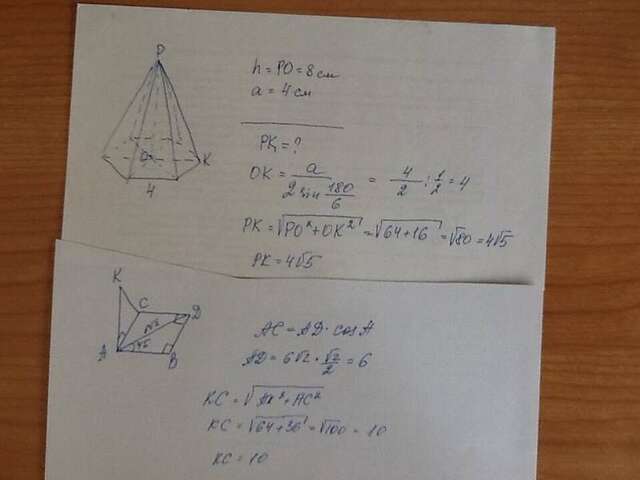 P
h = PO = 8 см
a = 4 см
O
K
4
PK = ?
OK = a / (2 sin 180/6) = 4/2 : 1/2 = 4
PK = √(PO² + OK²) = √(64+16) = √80 = 4√5
PK = 4√5
K
C
D
6√2
A
45
B
AC = AD · cos A
AD = 6√2 · √2/2 = 6
KC = √(AK² + AC²)
KC = √(64+36) = √100 = 10
KC = 10